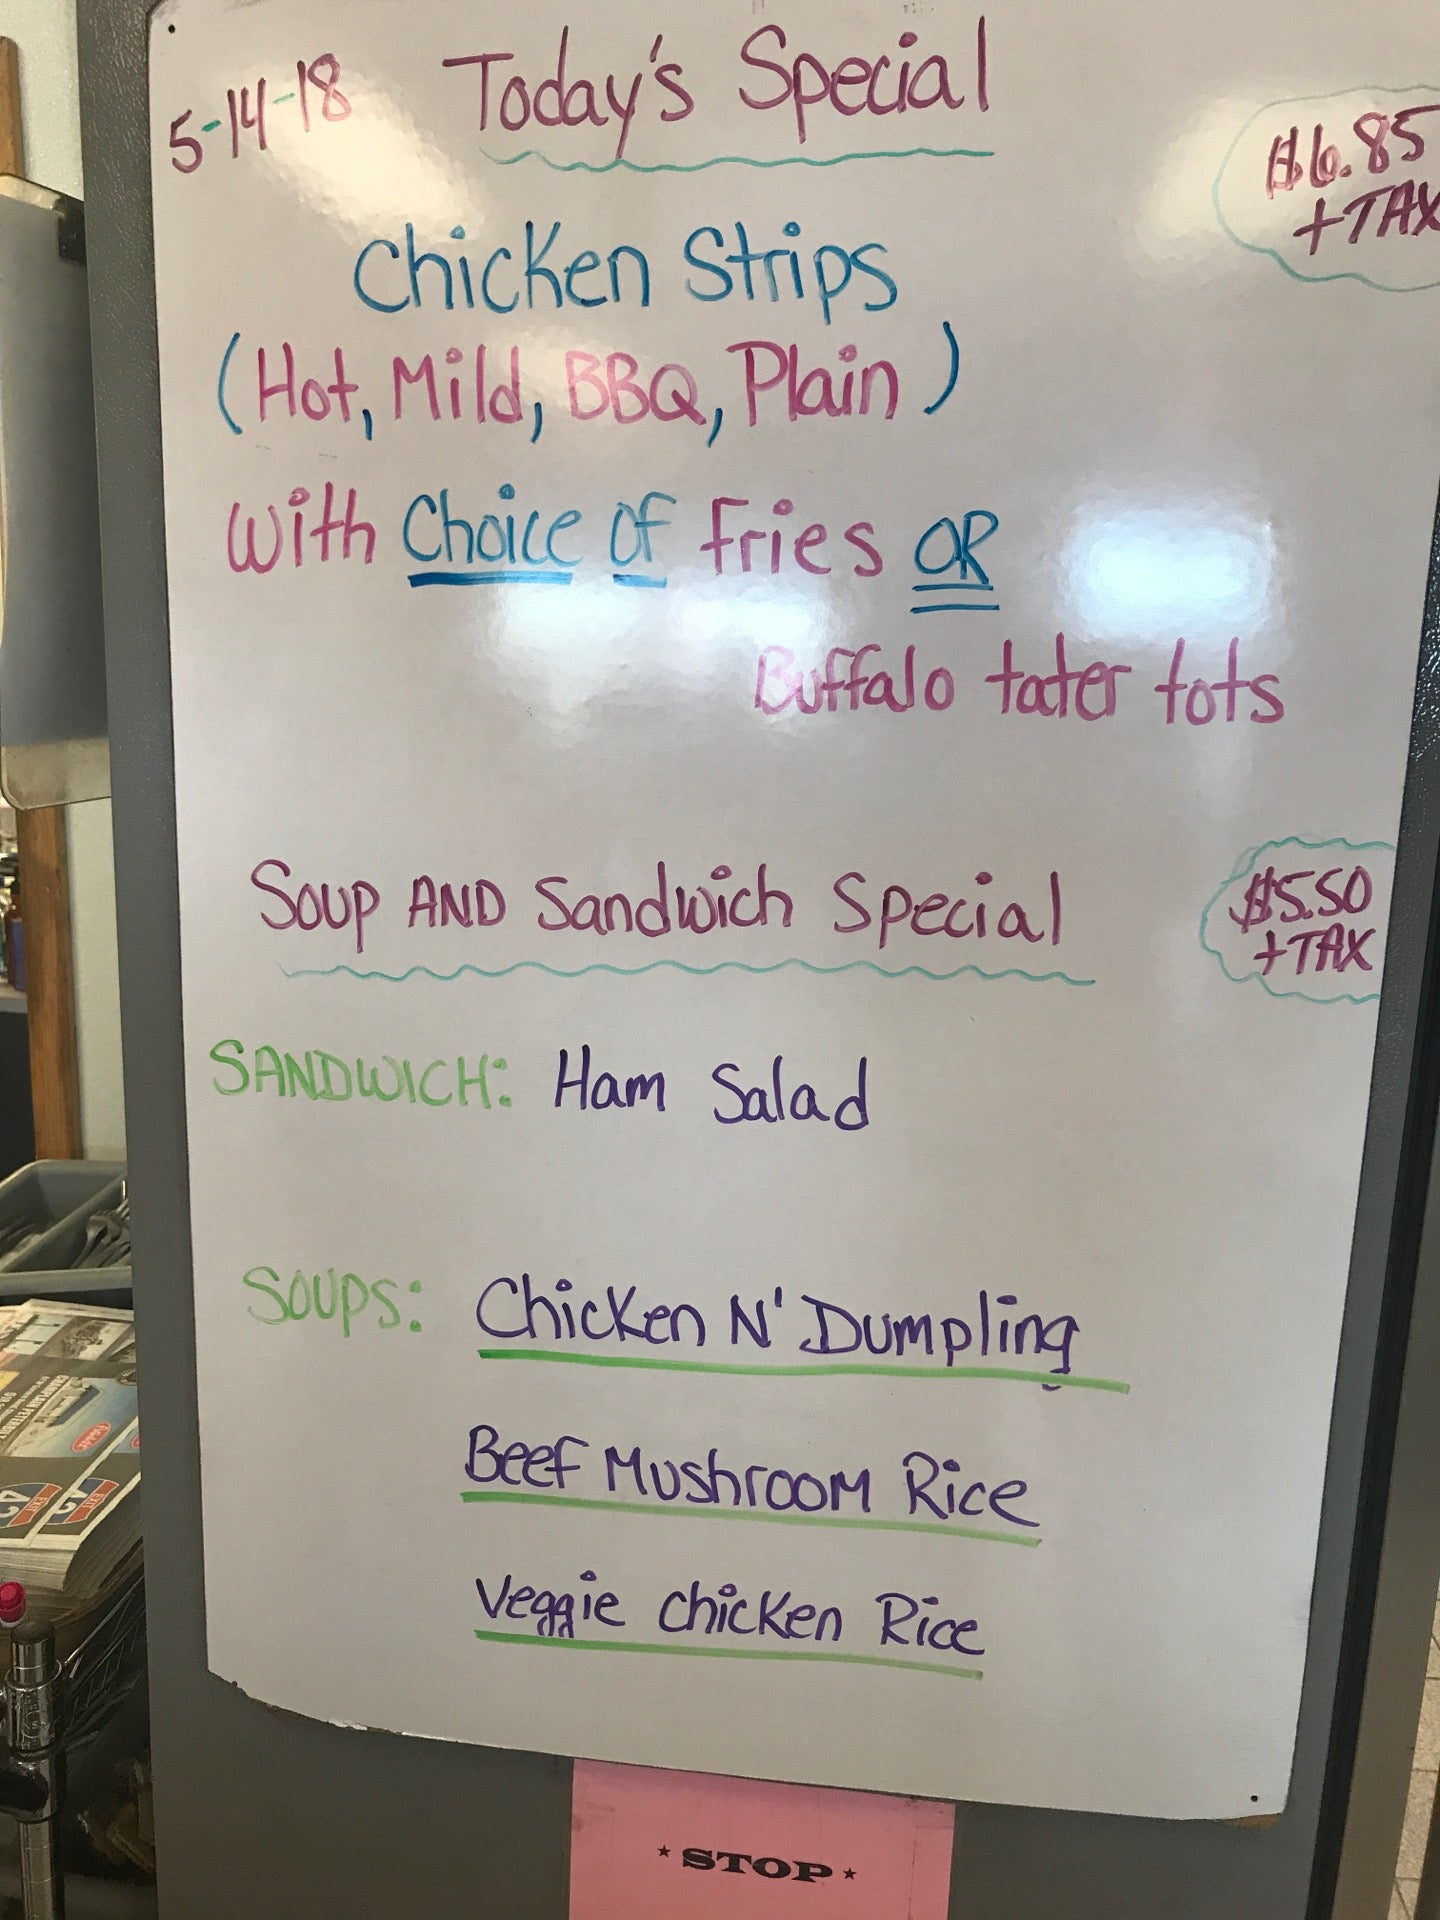 5-14-18 Today's Special
$6.85
+TAX
Chicken Strips
(Hot, Mild, BBQ, Plain)
With Choice of Fries OR
Buffalo tater tots
Soup AND Sandwich Special
$5.50
+TAX
SANDWICH: Ham Salad
SOUPS: Chicken N' Dumpling
Beef Mushroom Rice
Veggie Chicken Rice
* STOP *